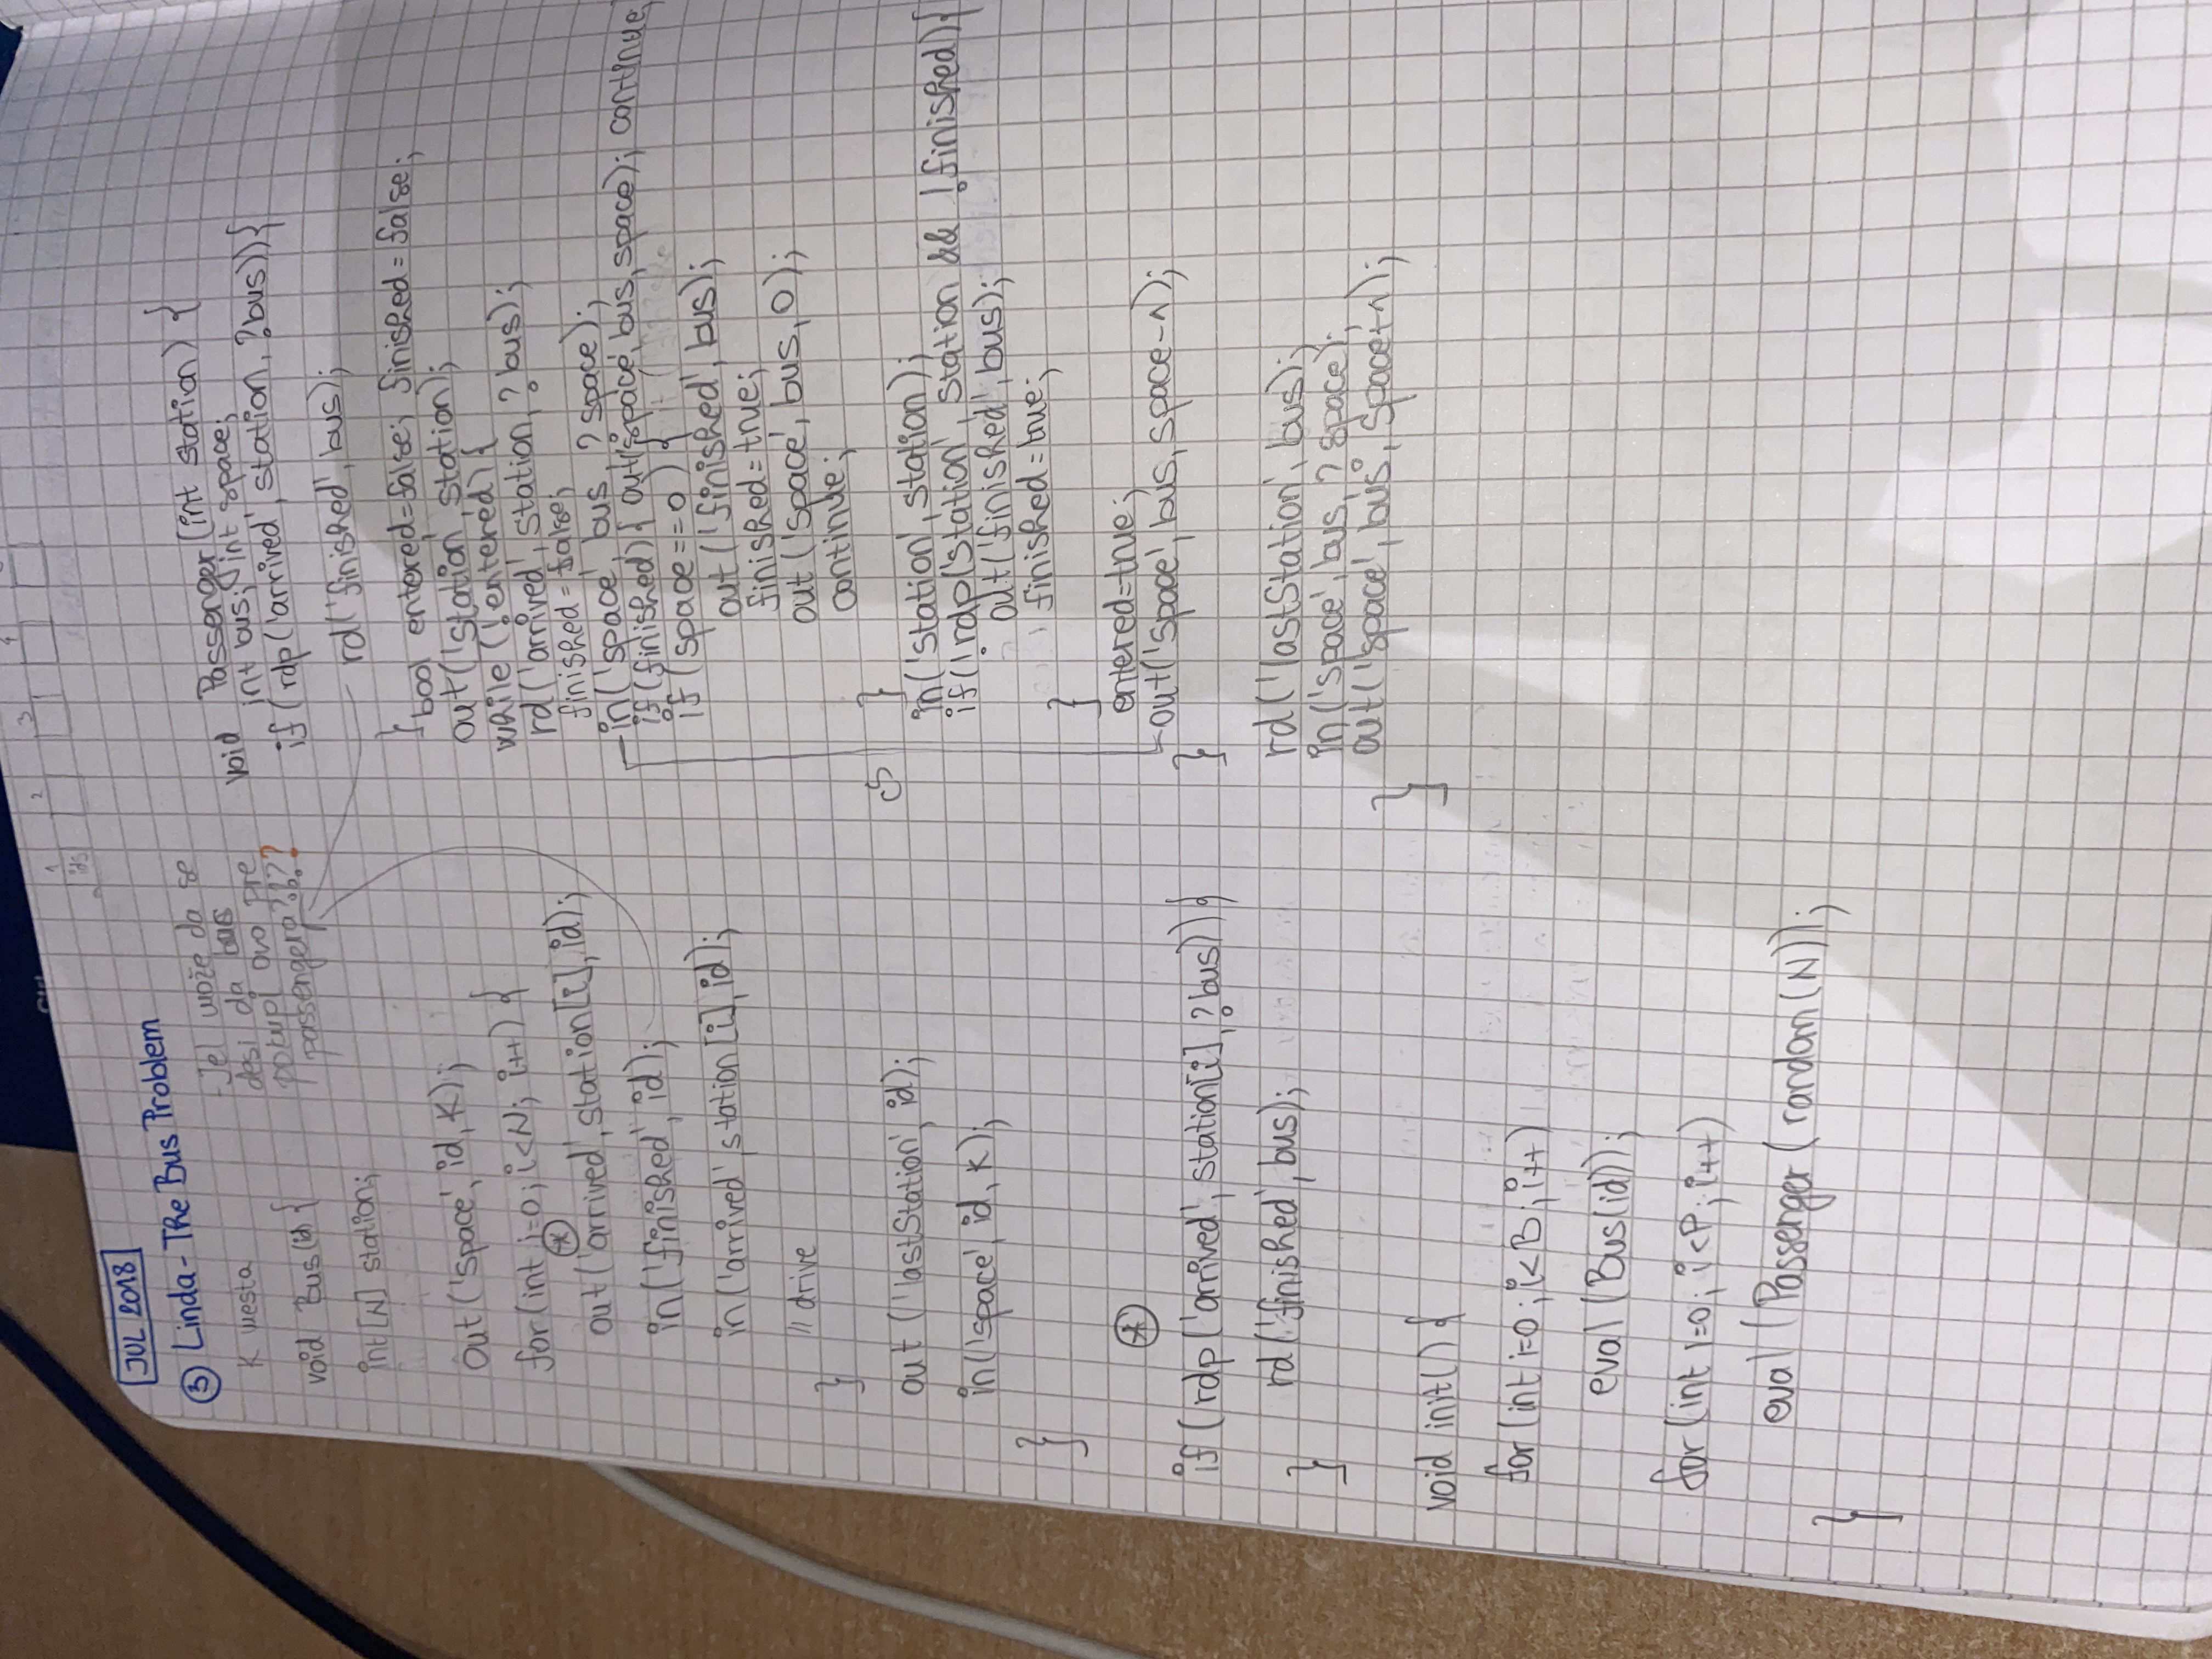 1 2 3 4
ids
JUL 2018
③ Linda - The Bus Problem
K mesta
- Jel može da se
desi da bus
pokupi ovo pre
passengera?????
void Bus(id) {
int[N] station;
out('space', id, K);
for(int i=0; i<N; i++) {
(*)
out('arrived', station[i], id);
in('finished', id);
in('arrived', station[i], id);
// drive
}
out('lastStation', id);
in('space', id, K);
}
(*)
if(rdp('arrived', station[i], ?bus)){
rd('finished', bus);
}
void init() {
for(int i=0; i<B; i++)
eval(Bus(id));
for(int i=0; i<P; i++)
eval(Passenger(random(N));
}
void Passenger(int station) {
int bus; int space;
if(rdp('arrived', station, ?bus)){
rd('finished', bus);
}
bool entered=false; finished=false;
out('station', station);
while(!entered) {
rd('arrived', station, ?bus);
finished=false;
in('space', bus, ?space);
if(finished){ out('space', bus, space); continue;
if(space==0) {
out('finished', bus);
finished=true;
out('space', bus, 0);
continue;
}
cs
in('station', station);
if(!rdp('station', station && !finished){
out('finished', bus);
finished=true;
}
entered=true;
out('space', bus, space-1);
}
rd('lastStation', bus);
in('space', bus, ?space);
out('space', bus, space+1);
}